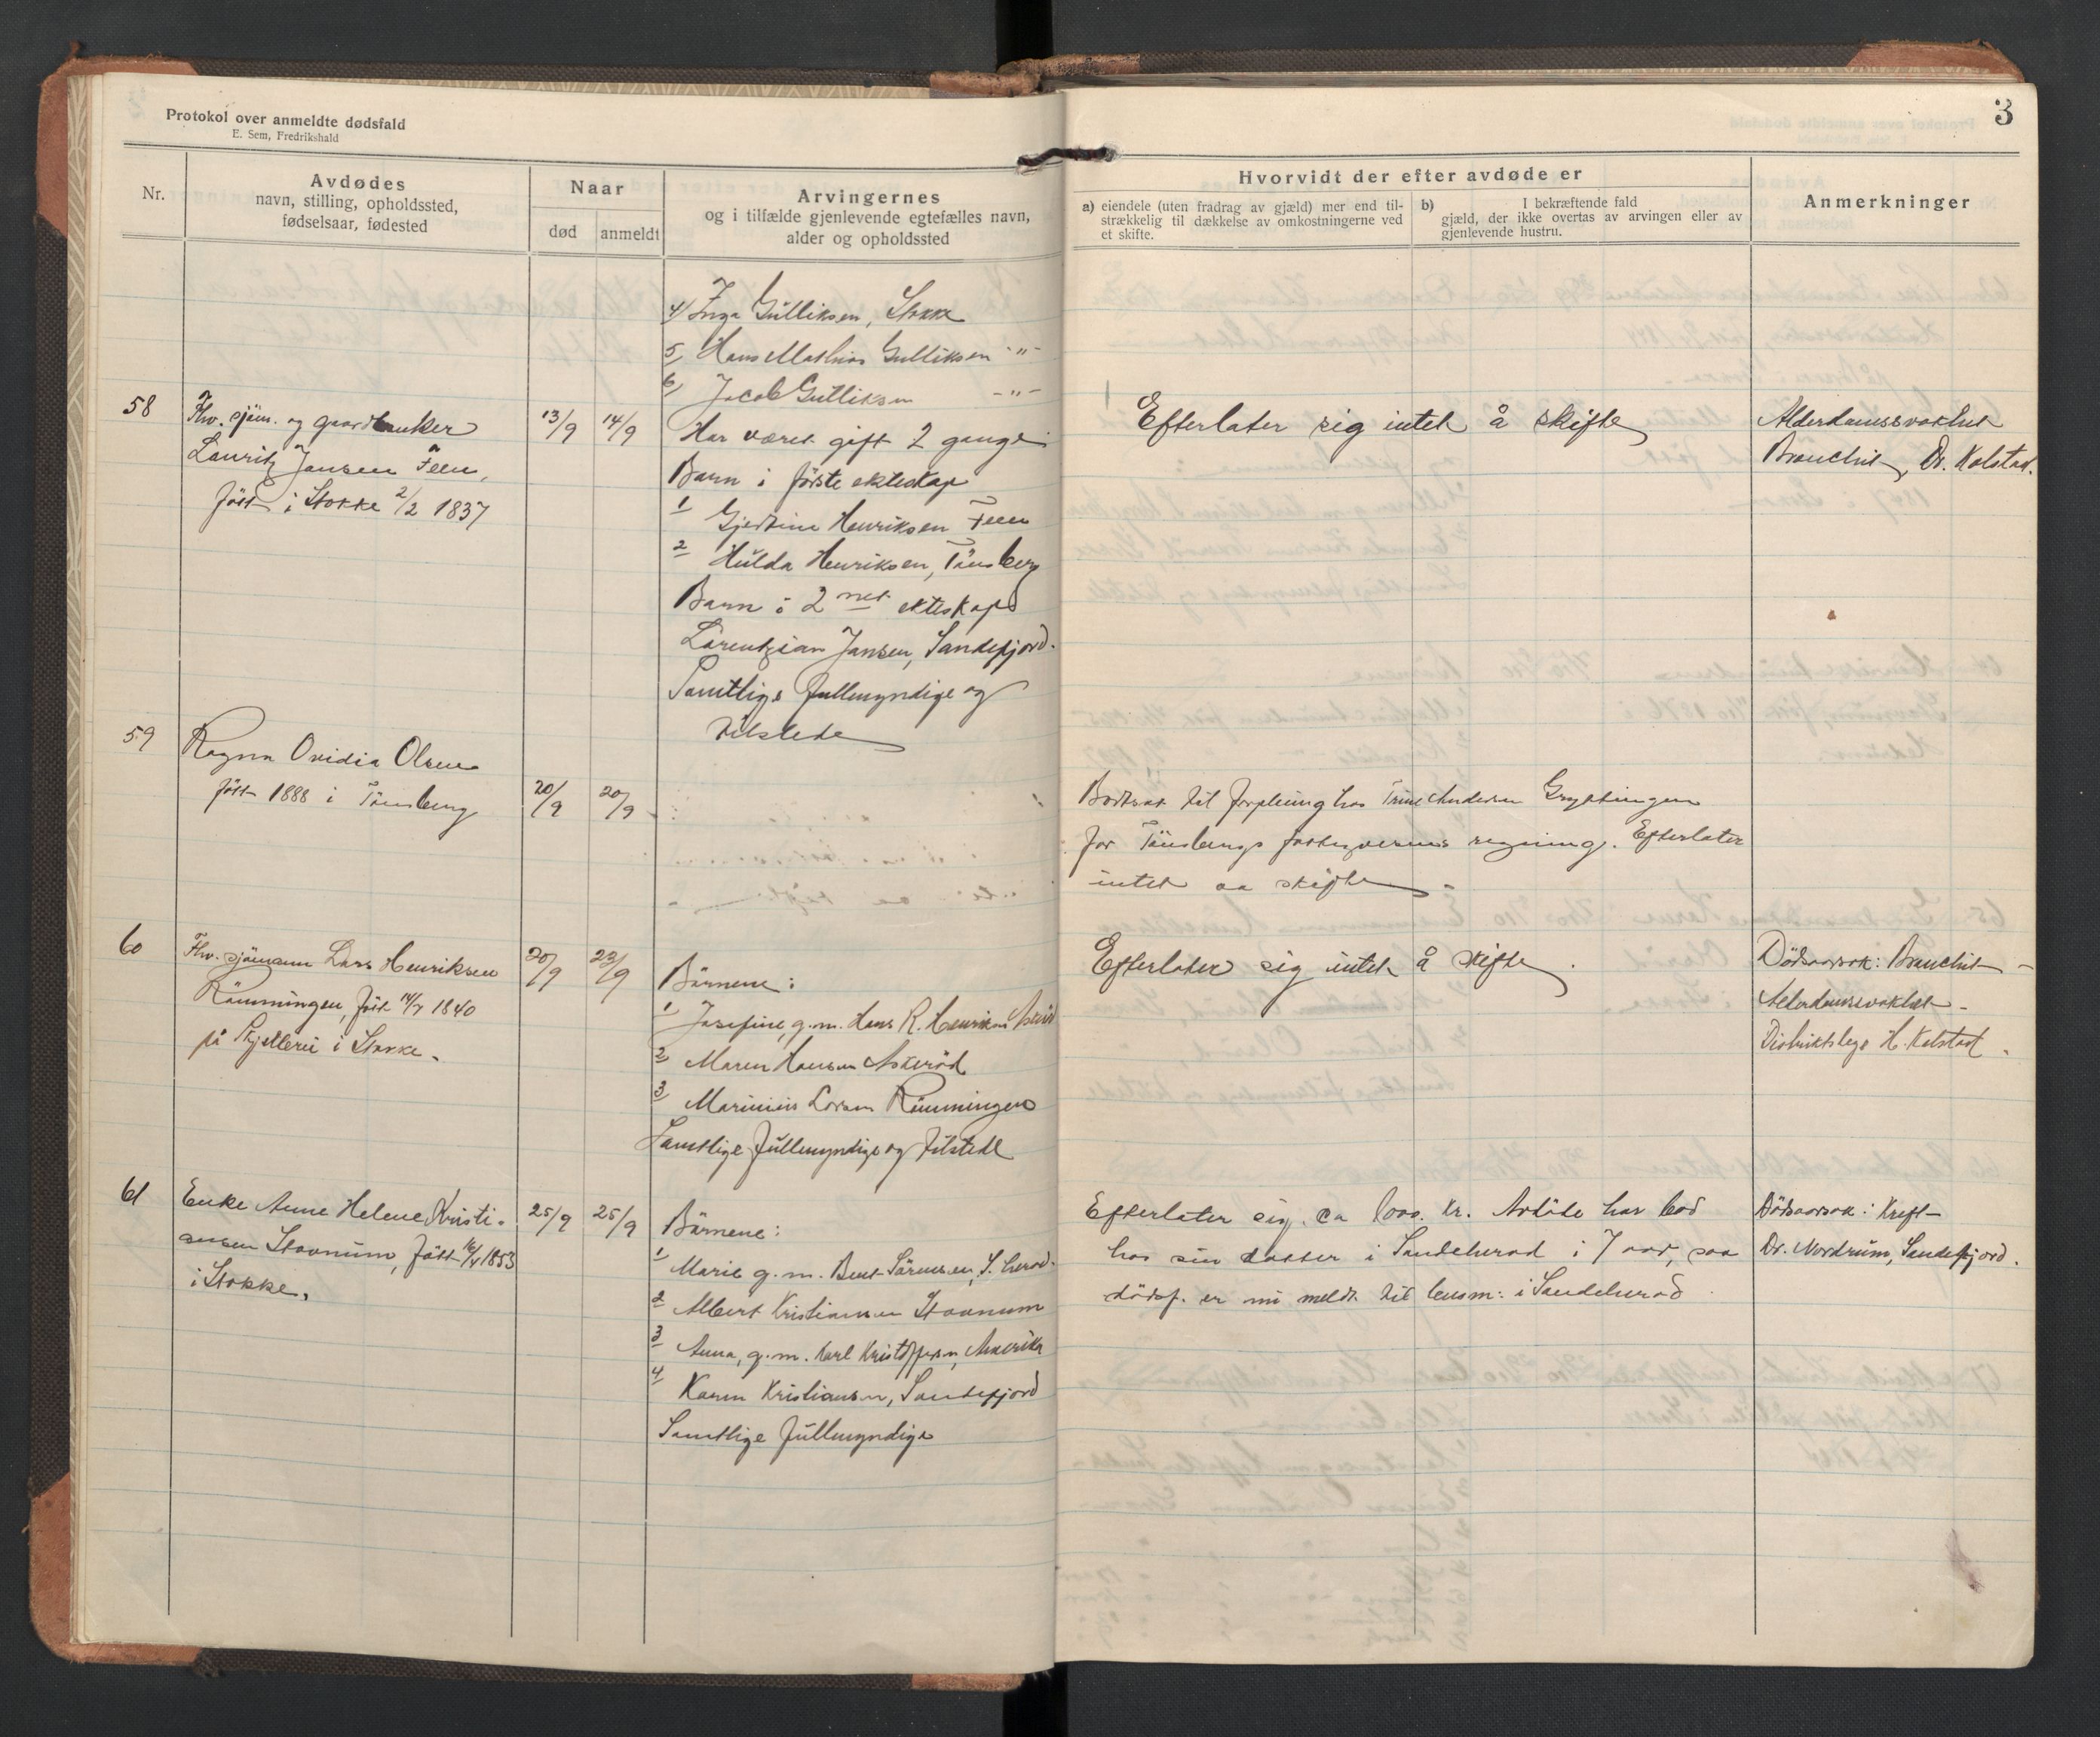 Protokol over anmeldte dødsfald
E. Sem, Fredrikshald
3
Nr.
Avdødes
navn, stilling, opholdssted,
fødselsaar, fødested
Naar
død
anmeldt
Arvingernes
og i tilfælde gjenlevende egtefælles navn,
alder og opholdssted
Hvorvidt der efter avdøde er
a) eiendele (uten fradrag av gjæld) mer end til-
strækkelig til dækkelse av omkostningerne ved
et skifte.
b) I bekræftende fald
gjæld, der ikke overtas av arvingen eller av
gjenlevende hustru.
Anmerkninger
4) Inga Gulliksen, Stokke
5) Hans Mathias Gulliksen -"-
6) Jacob Gulliksen -"-
58
Fhv. sjøm. og gaardbruker
Lauritz Jansen Feen,
født i Stokke 2/2 1837
13/9
14/9
Har været gift 2 gange
Barn i første ekteskap
1 Gjertine Henriksen Feen
2 Hulda Henriksen, Tønsberg
Barn i 2net ekteskap
Larentzian Jansen, Sandefjord.
Samtlige fullmyndige og
tilstede
Efterlater sig intet å skifte
Alderdomssvakhet
Bronchit, Dr. Kolstad.
59
Ragna Ovidia Olsen
født 1888 i Tønsberg
20/9
20/9
Bortsat til forpleining hos Trine Andersen Gryttingen
for Tønsbergs fattigvesens regning. Efterlater
intet aa skifte
60
Fhv. sjømann Lars Henriksen
Rømmingen, født 14/7 1840
på Skjellerei i Stokke.
20/9
23/9
Børnene:
1 Josefine, g.m. Hans R. Henriksen
2 Maren Hansen Askerød
3 Marinius Larsen Rømmingen
Samtlige fullmyndige og tilstede
Efterlater sig intet å skifte.
Dødsaarsak: Bronchit -
Alderdomssvakhet -
Distriktslege H. Kolstad.
61
Enke Anne Helene Kristi-
ansen Stovnum, født 16/4 1853
i Stokke.
25/9
25/9
Børnene:
1 Marie g.m. Bent Sørensen, S. herad.
2 Albert Kristiansen Stovnum
3 Anna, g.m. Karl Kristoffersen, Amerika
4 Karen Kristiansen, Sandefjord
Samtlige fullmyndige
Efterlater sig ca 1000. kr. Avdøde har bod
hos sin datter i Sandeherad i 7 aar, saa
dødsf. er nu meldt til lensm: i Sandeherad
Dødsaarsak: Kreft -
Dr. Nordrum, Sandefjord.